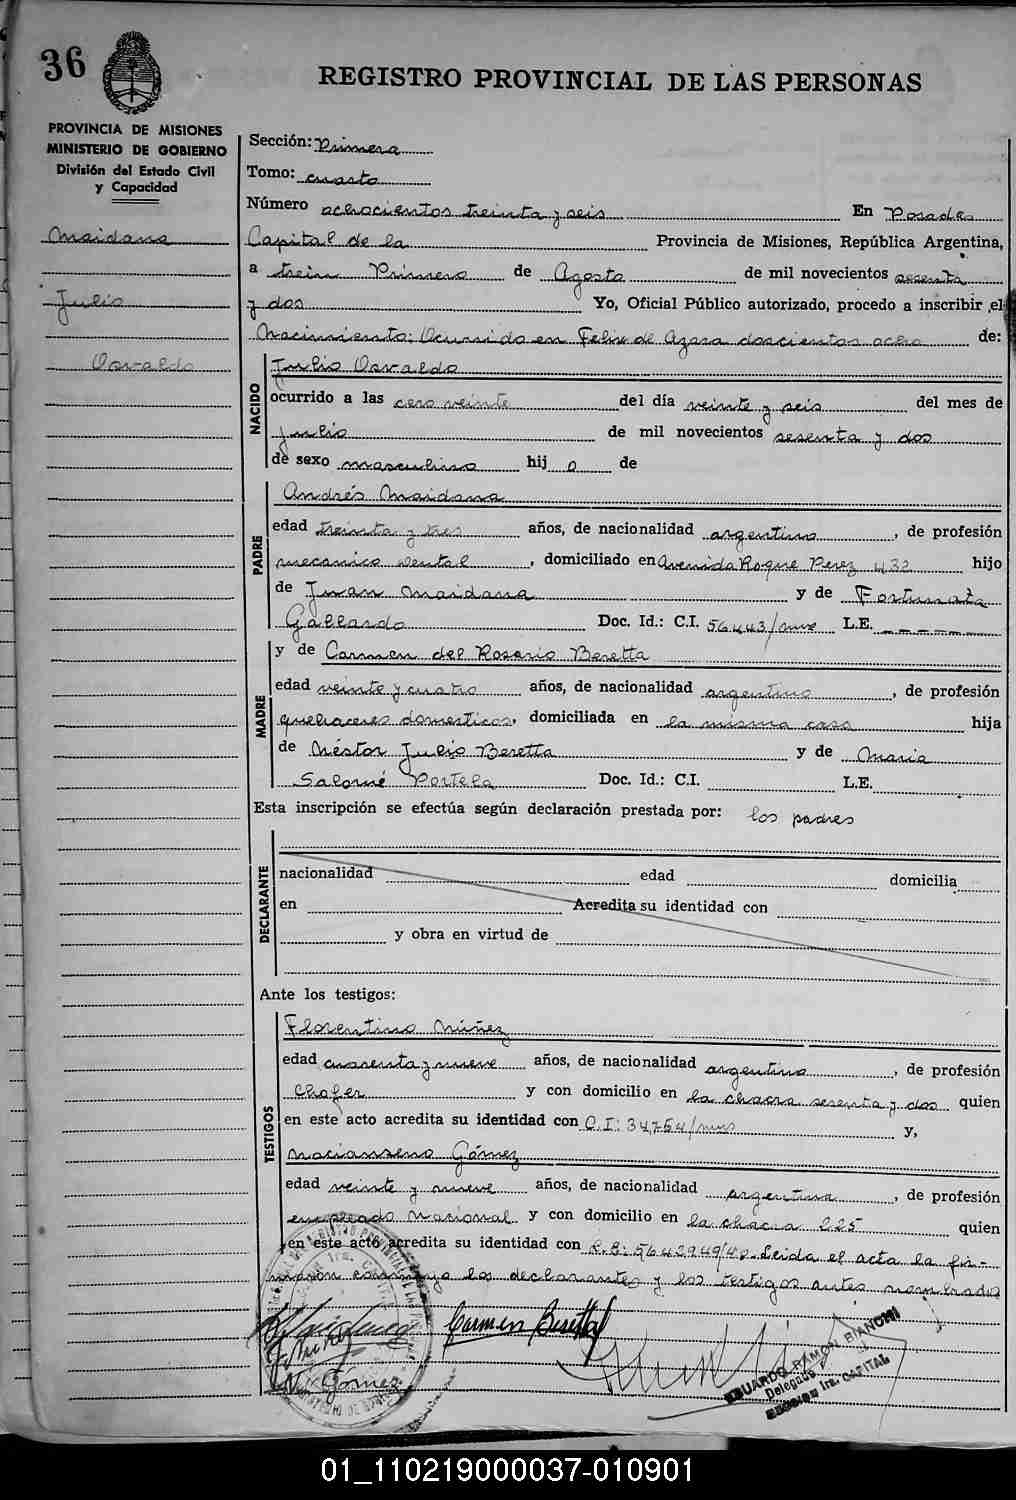 36
REGISTRO PROVINCIAL DE LAS PERSONAS
PROVINCIA DE MISIONES
MINISTERIO DE GOBIERNO
División del Estado Civil
y Capacidad
Maidana
Julio
Osvaldo
Sección: Primera
Tomo: cuarto
Número ochocientos treinta y seis En Posadas
Capital de la Provincia de Misiones, República Argentina,
a trein Primero de Agosto de mil novecientos sesenta
y dos Yo, Oficial Público autorizado, procedo a inscribir el
Nacimiento: Ocurrido en Felix de Azara doscientos ocho de:
NACIDO
Julio Osvaldo
ocurrido a las cero veinte del día veinte y seis del mes de
Julio de mil novecientos sesenta y dos
de sexo masculino hij o de
PADRE
Andrés Maidana
edad treinta y tres años, de nacionalidad argentino, de profesión
mecanico dental, domiciliado en Avenida Roque Perez 432 hijo
de Juan Maidana y de Fortunata
Gallardo Doc. Id.: C.I. 56443/mnes L.E. _ _ _ _ _ _
y de Carmen del Rosario Beretta
MADRE
edad veinte y cuatro años, de nacionalidad argentino, de profesión
quehaceres domesticos, domiciliada en la misma casa hija
de Néstor Julio Beretta y de Maria
Salomé Portela Doc. Id.: C.I. L.E.
Esta inscripción se efectúa según declaración prestada por: los padres
DECLARANTE
nacionalidad edad domicilia
en Acredita su identidad con
y obra en virtud de
Ante los testigos:
TESTIGOS
Florentino Núñez
edad cuarenta y nueve años, de nacionalidad argentino, de profesión
Chofer y con domicilio en la chacra sesenta y dos quien
en este acto acredita su identidad con C.I: 34754/mns y,
Nacianseno Gómez
edad veinte y nueve años, de nacionalidad argentina, de profesión
empleado Nacional y con domicilio en la chacra 225 quien
en este acto acredita su identidad con R.B: 5642949/42. Leida el acta la fir-
maron conmigo los declarantes y los testigos antes nombrados
Carmen Beretta
F. Nuñez
N. Gómez
EDUARDO RAMON BIANCHI
Delegado
SECCION 1ra. CAPITAL
01_110219000037-010901